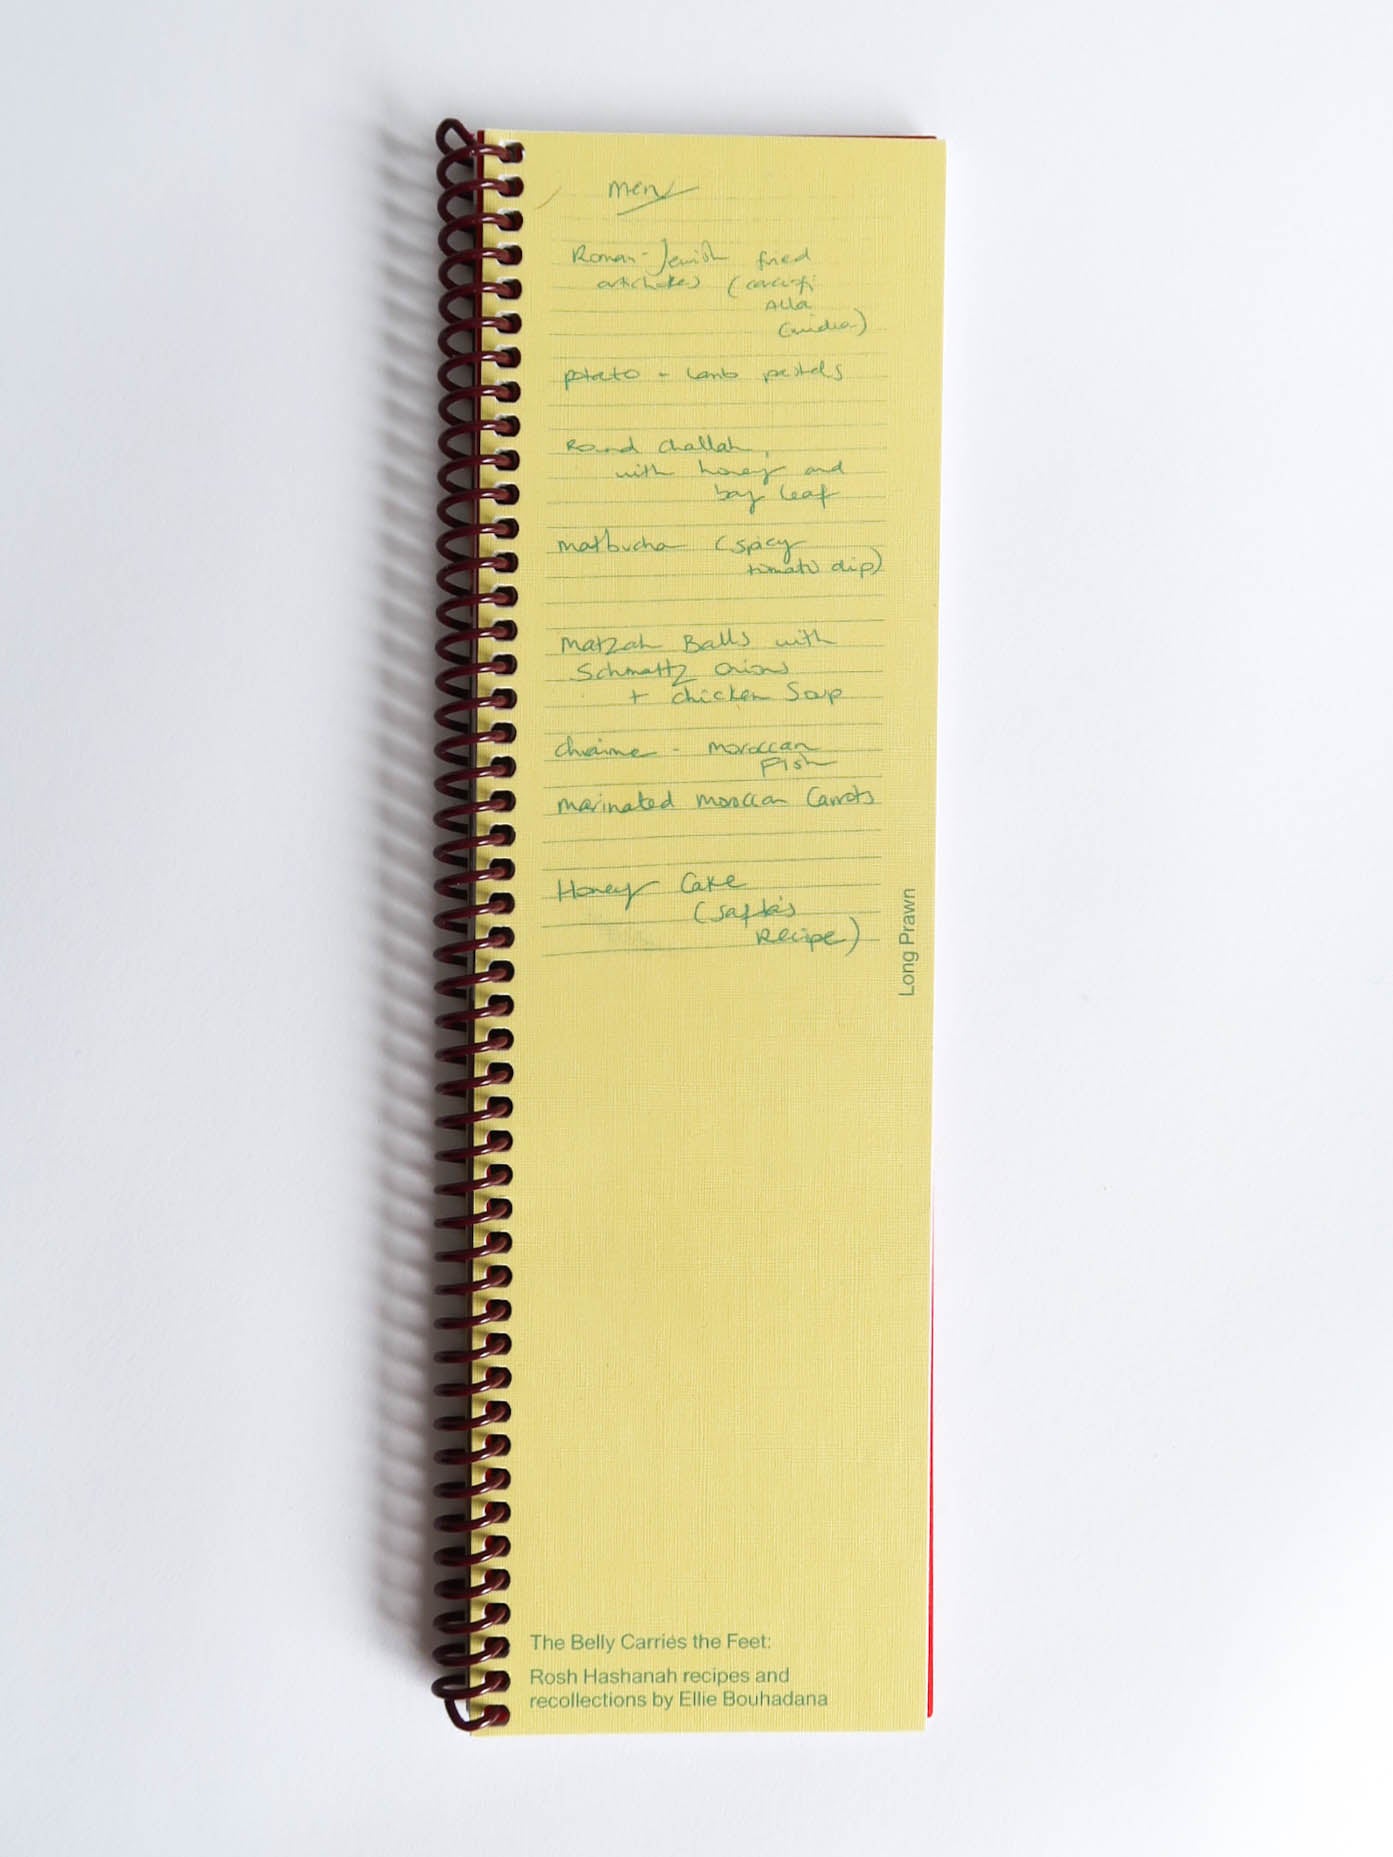 menu
Roman-Jewish fried
artichokes (carciofi
Alla
Guidia)
potato - Lamb pastels
Round challah,
with honey and
bay leaf
matbucha (spicy
tomato dip)
Matzah Balls with
Schmaltz onions
+ chicken Soup
chraime - moroccan
fish
marinated moroccan Carrots
Honey Cake
(Safta's
Recipe)
Long Prawn
The Belly Carries the Feet:
Rosh Hashanah recipes and
recollections by Ellie Bouhadana